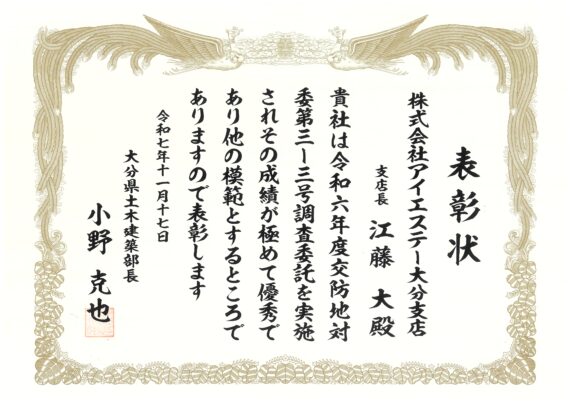 表彰状
株式会社アイエステー大分支店
支店長 江藤 大 殿
貴社は令和六年度交防地対
委第三ー三号調査委託を実施
されその成績が極めて優秀で
あり他の模範とするところで
ありますので表彰します
令和七年十一月十七日
大分県土木建築部長
小野 克也